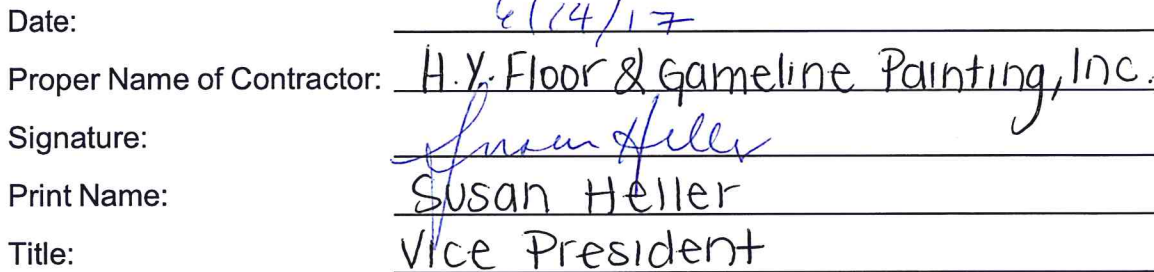 Date: 6/14/17
Proper Name of Contractor: H.Y. Floor & Gameline Painting, Inc.
Signature: Susan Heller
Print Name: Susan Heller
Title: Vice President